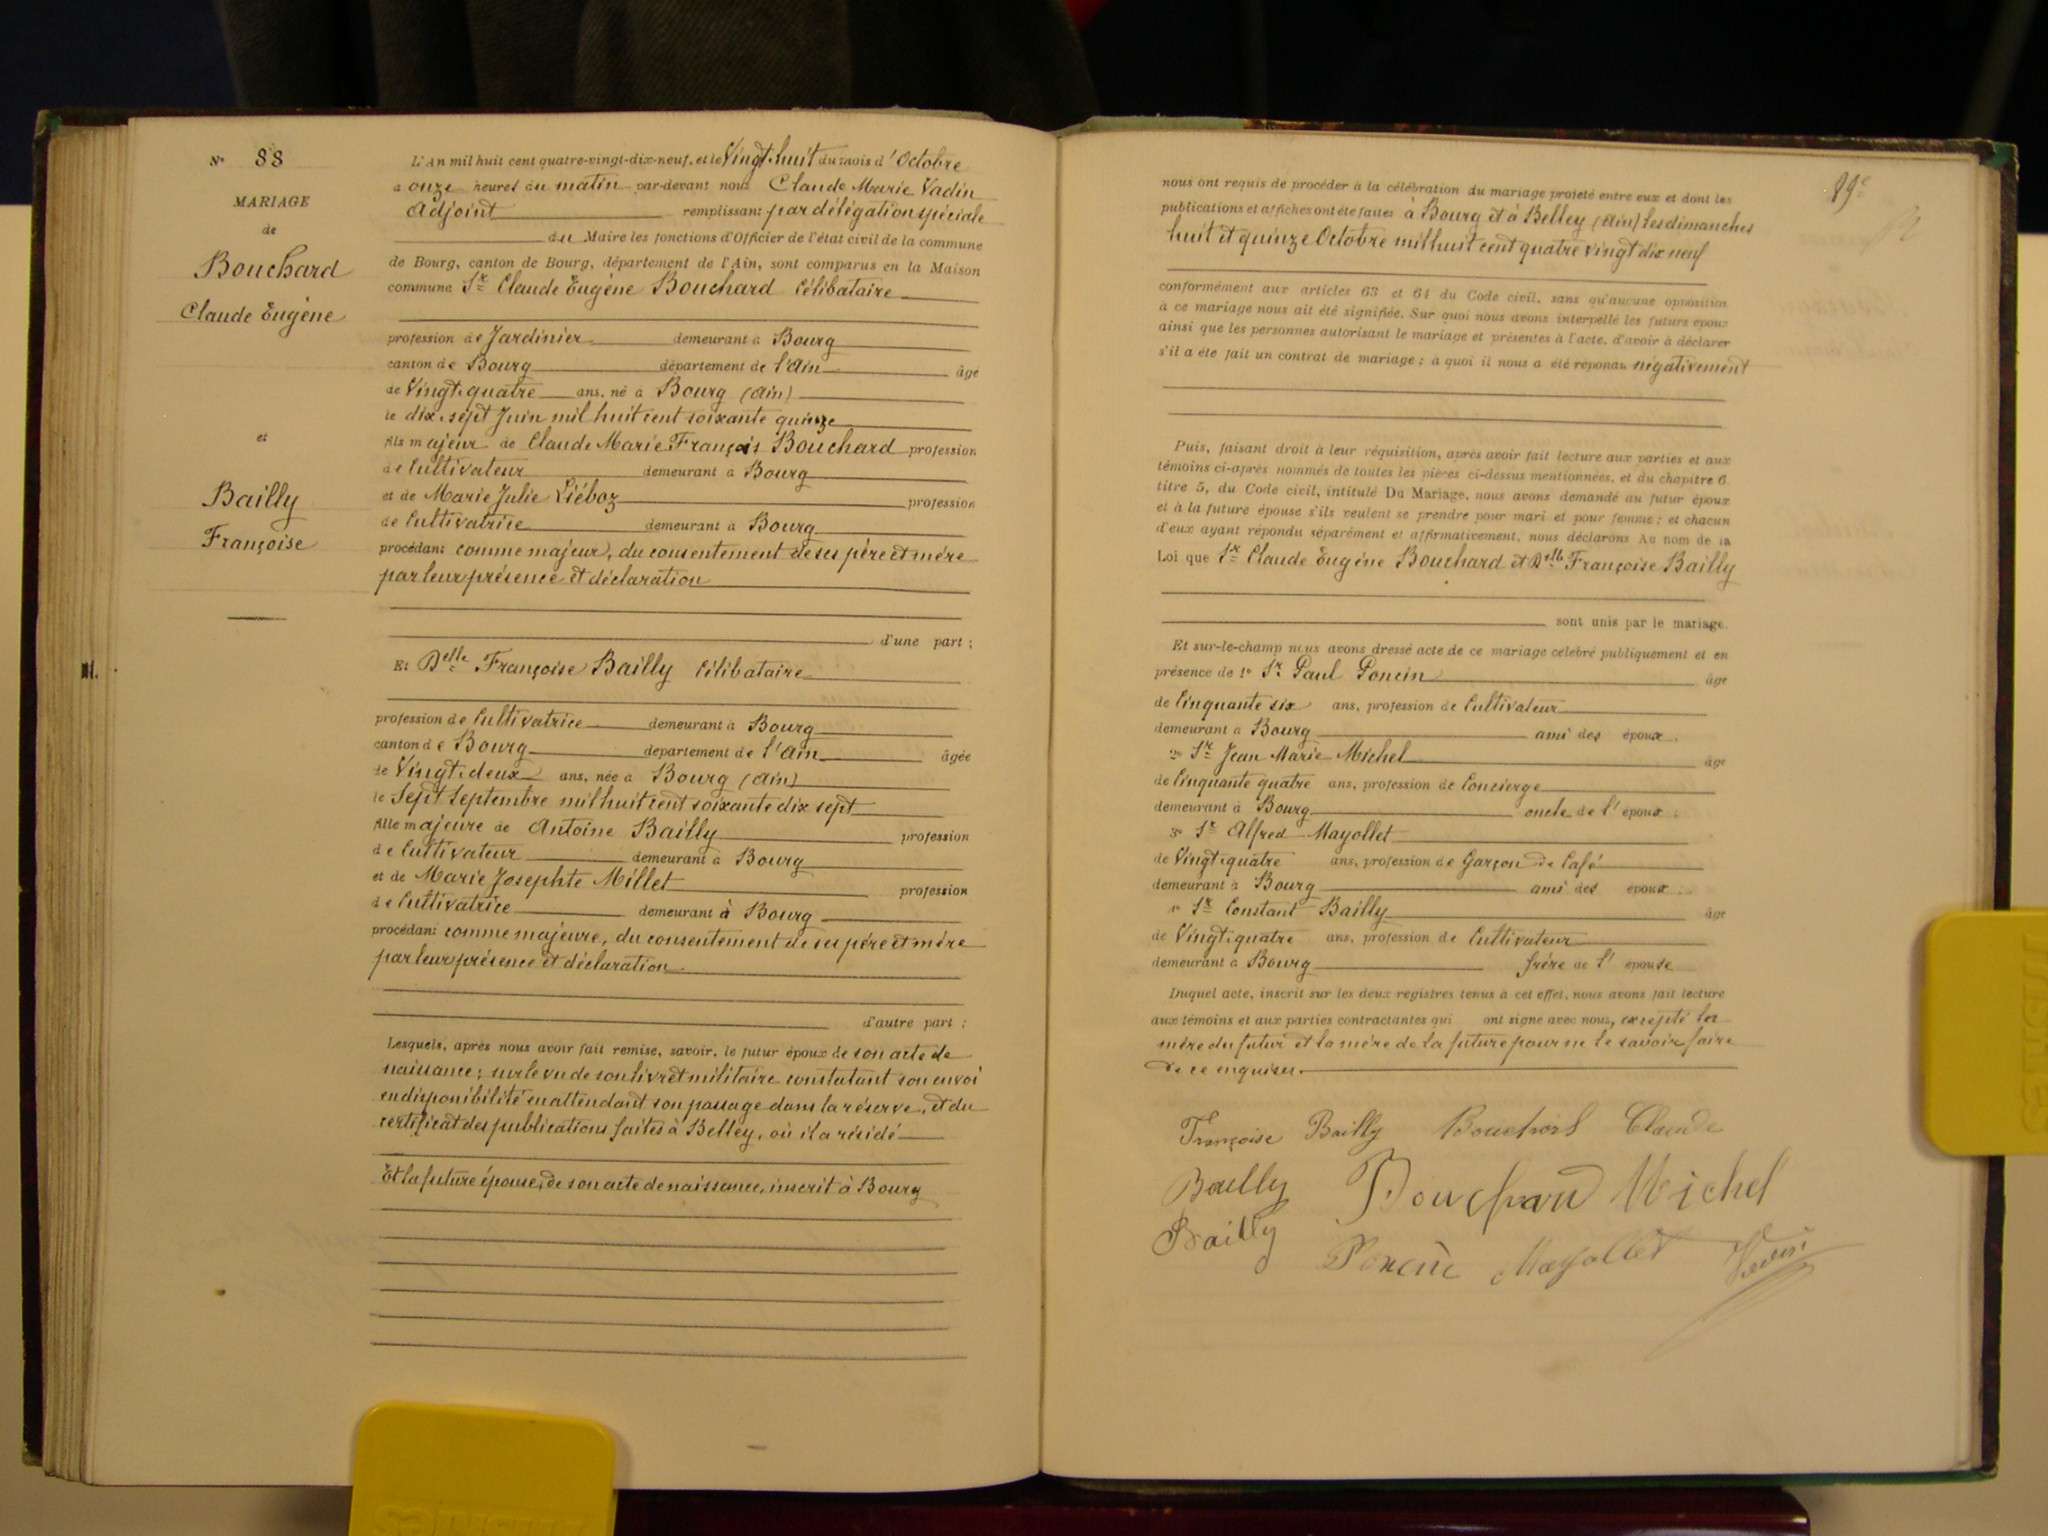 N° 88
MARIAGE
de
Bouchard
Claude Eugène
et
Bailly
Françoise
L'An mil huit cent quatre-vingt-dix-neuf, et le Vingt-huit du mois d'Octobre
a onze heures du matin par-devant nous Claude Marie Vadin
Adjoint remplissant par délégation spéciale
du Maire les fonctions d'Officier de l'état civil de la commune
de Bourg, canton de Bourg, département de l'Ain, sont comparus en la Maison
commune Sr Claude Eugène Bouchard Célibataire
profession de Jardinier demeurant à Bourg
canton de Bourg département de l'Ain âgé
de Vingt-quatre ans, né à Bourg (Ain)
le dix-sept Juin mil huit cent soixante quinze
fils majeur de Claude Marie François Bouchard profession
de Cultivateur demeurant à Bourg
et de Marie Julie Liéboz profession
de Cultivatrice demeurant à Bourg
procédant comme majeur, du consentement de ses père et mère
par leur présence et déclaration
d'une part ;
Et Delle Françoise Bailly Célibataire
profession de Cultivatrice demeurant à Bourg
canton de Bourg département de l'Ain âgée
de Vingt-deux ans, née à Bourg (Ain)
le Sept Septembre mil huit cent soixante dix sept
fille majeure de Antoine Bailly profession
de Cultivateur demeurant à Bourg
et de Marie Josephte Millet profession
de Cultivatrice demeurant à Bourg
procédant comme majeure, du consentement de ses père et mère
par leur présence et déclaration
d'autre part ;
Lesquels, après nous avoir fait remise, savoir, le futur époux de son acte de
naissance ; sur le vu de son livret militaire constatant son envoi
en disponibilité en attendant son passage dans la réserve, et du
certificat des publications faites à Belley, où il a résidé
Et la future épouse, de son acte de naissance, inscrit à Bourg
89e
nous ont requis de procéder à la célébration du mariage projeté entre eux et dont les
publications et affiches ont été faites à Bourg et à Belley (Ain) les dimanches
huit et quinze Octobre mil huit cent quatre vingt dix neuf
conformément aux articles 63 et 64 du Code civil, sans qu'aucune opposition
à ce mariage nous ait été signifiée. Sur quoi nous avons interpellé les futurs époux
ainsi que les personnes autorisant le mariage et présentes à l'acte, d'avoir à déclarer
s'il a été fait un contrat de mariage ; à quoi il nous a été répondu négativement
Puis, faisant droit à leur réquisition, après avoir fait lecture aux parties et aux
témoins ci-après nommés de toutes les pièces ci-dessus mentionnées, et du chapitre 6,
titre 5, du Code civil, intitulé Du Mariage, nous avons demandé au futur époux
et à la future épouse s'ils veulent se prendre pour mari et pour femme ; et chacun
d'eux ayant répondu séparément et affirmativement, nous déclarons Au nom de la
Loi que Sr Claude Eugène Bouchard et Delle Françoise Bailly
sont unis par le mariage.
Et sur-le-champ nous avons dressé acte de ce mariage célébré publiquement et en
présence de 1° Sr Paul Poncin âgé
de Cinquante six ans, profession de Cultivateur
demeurant à Bourg ami des époux ;
2° Sr Jean Marie Michel âgé
de Cinquante quatre ans, profession de Concierge
demeurant à Bourg oncle de l'époux ;
3° Sr Alfred Mayollet
de Vingt-quatre ans, profession de Garçon de Café
demeurant à Bourg ami des époux ;
Sr Constant Bailly âgé
de Vingt-quatre ans, profession de Cultivateur
demeurant à Bourg frère de l'épouse
Duquel acte, inscrit sur les deux registres tenus à cet effet, nous avons fait lecture
aux témoins et aux parties contractantes qui ont signé avec nous, excepté la
mère du futur et la mère de la future pour ne le savoir faire
de ce enquises.
Françoise Bailly Bouchard Claude
Bailly Bouchard Michel
Bailly Poncin Mayollet Vadin